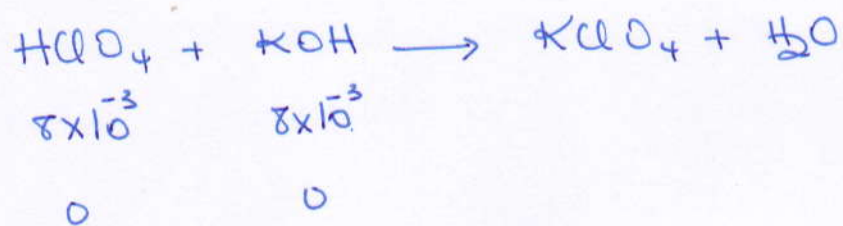 HClO₄ + KOH ⟶ KClO₄ + H₂O
8×10⁻³ 8×10⁻³
0 0